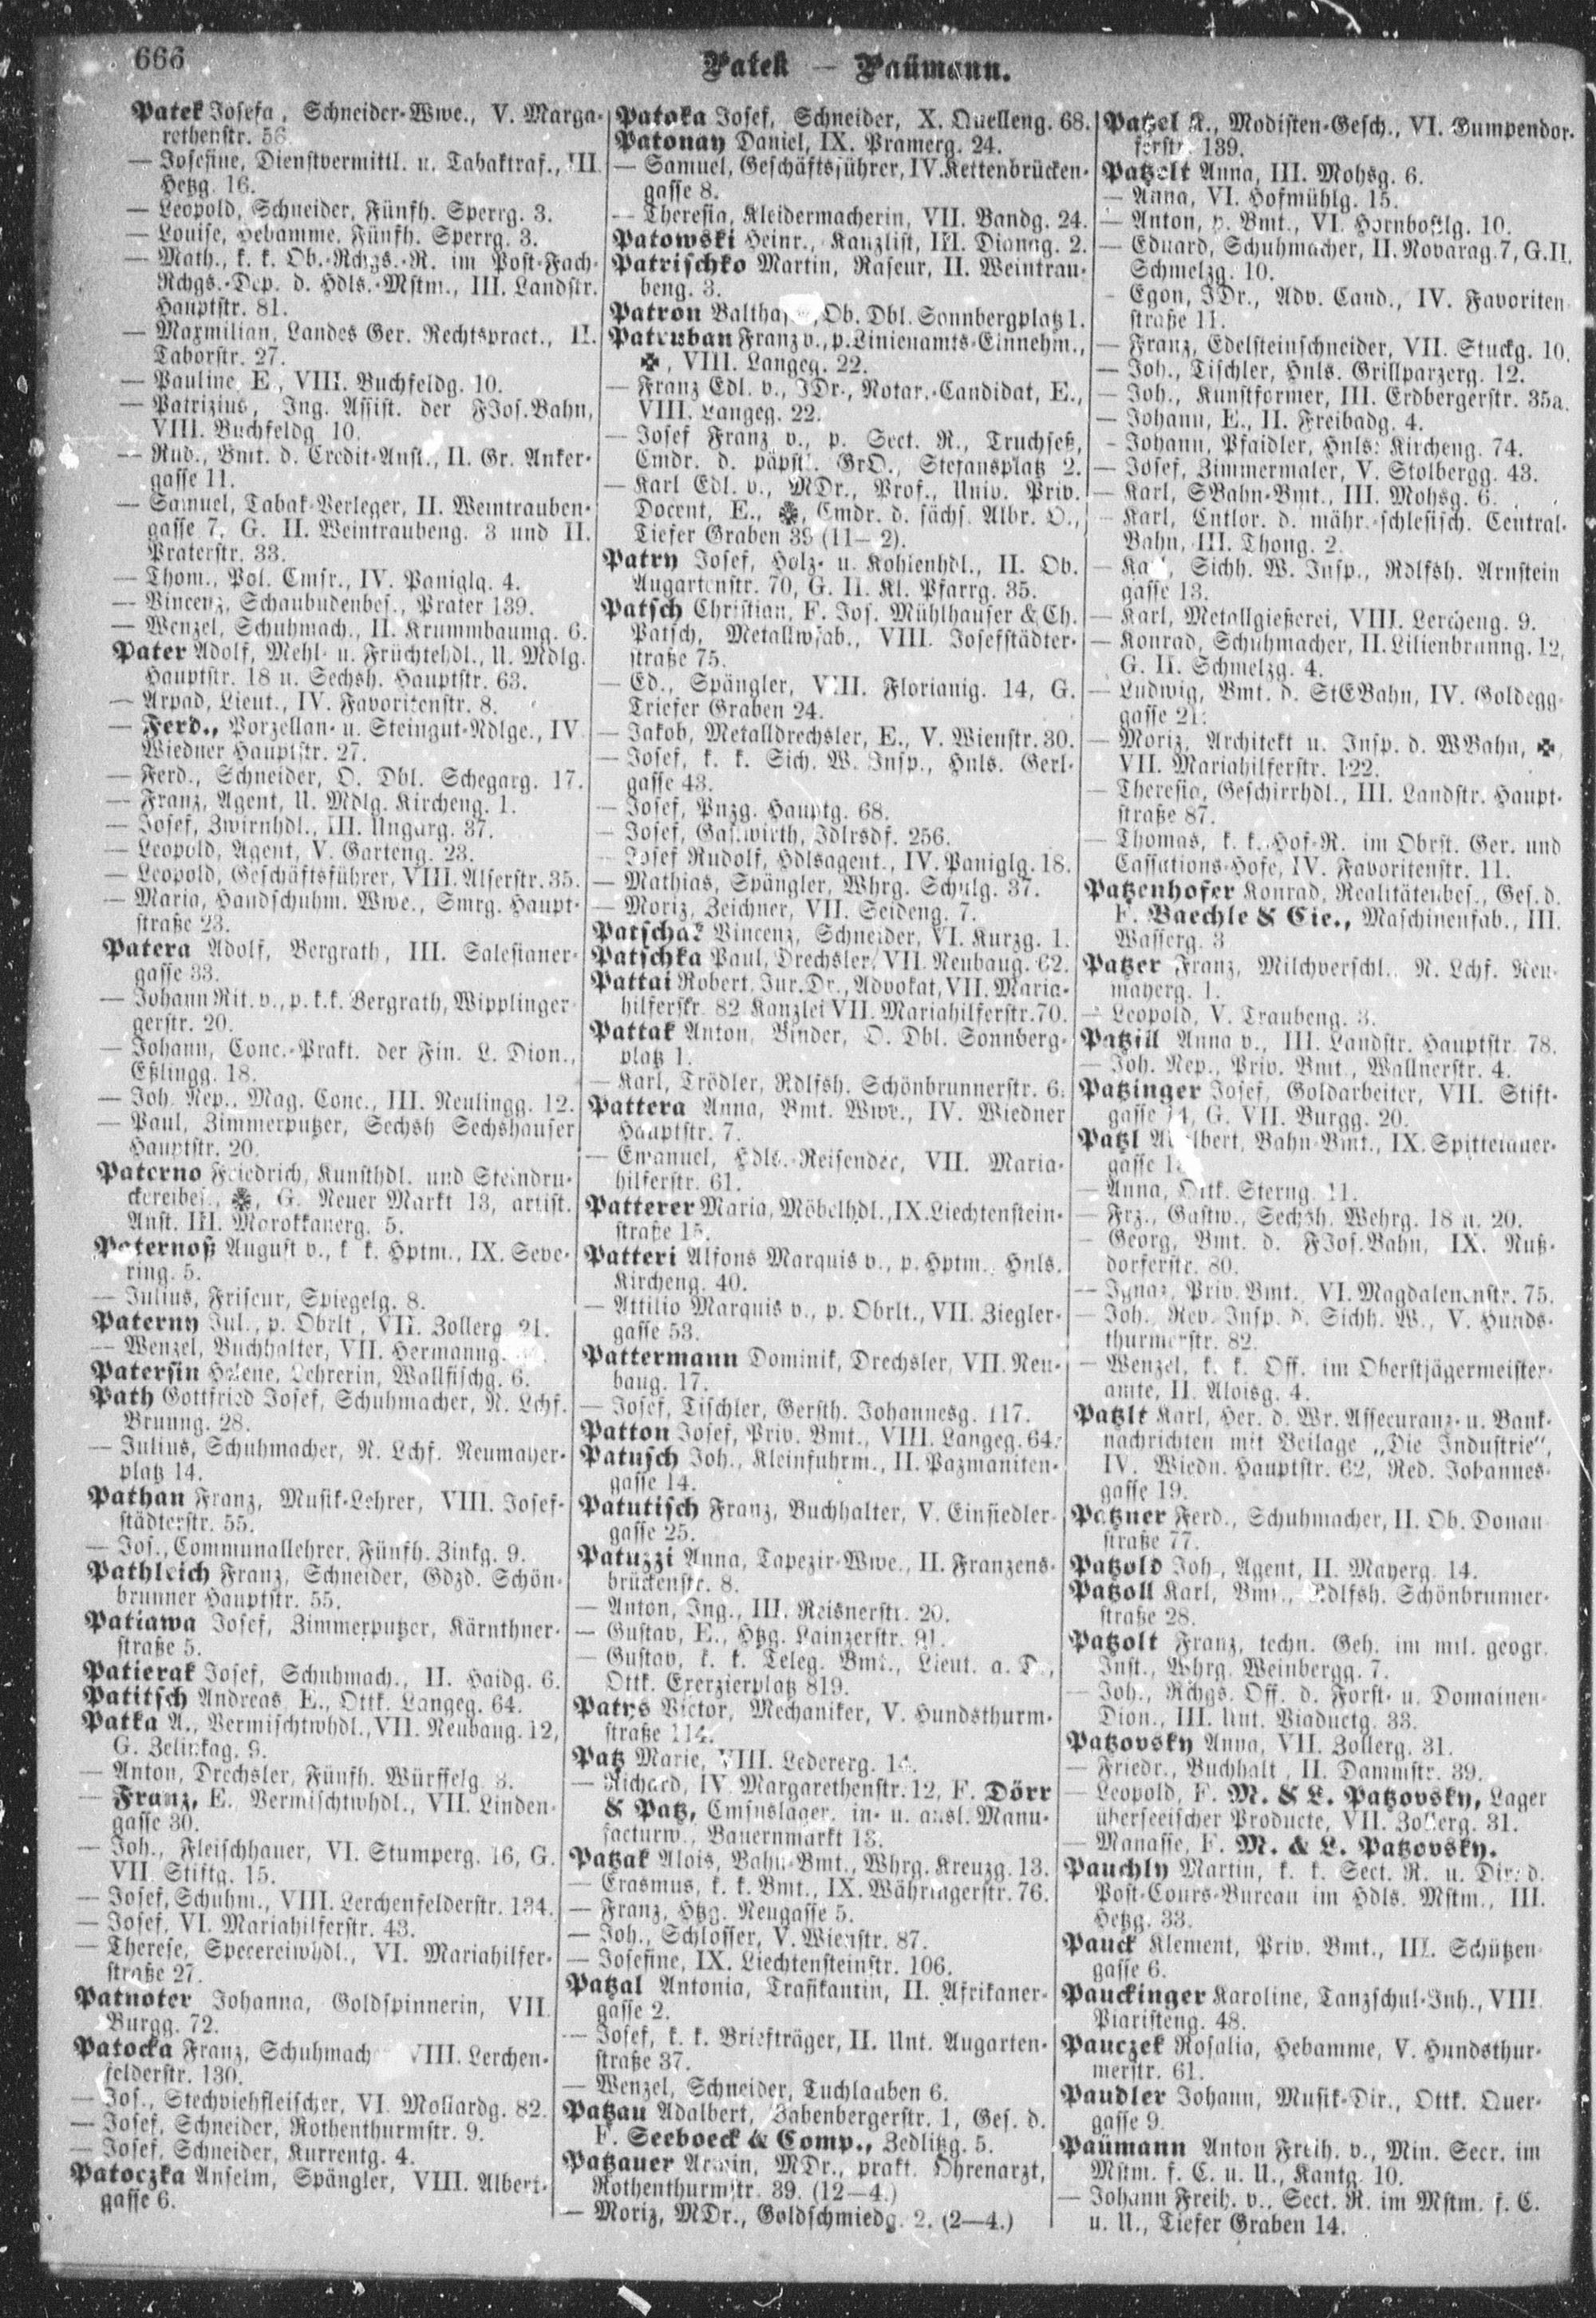 666
Patek — Paümann.
Patek Josefa, Schneider-Wwe., V. Marga-
rethenstr. 56
— Josefine, Dienstvermittl. u. Tabaktraf., III.
Hetzg. 16.
— Leopold, Schneider, Fünfh. Sperrg. 3.
— Louise, Hebamme, Fünfh. Sperrg. 3.
— Math., k. k. Ob.-Rchgs.-R. im Post-Fach-
Rchgs.-Dep. d. Hdls.-Mstm., III. Landstr.
Hauptstr. 81.
— Maxmilian, Landes Ger. Rechtspract., II.
Taborstr. 27.
— Pauline, E., VIII. Buchfeldg. 10.
— Patrizius, Ing. Assist. der FJos.Bahn,
VIII. Buchfeldg. 10.
— Rud., Bmt. d. Credit-Anst., II. Gr. Anker-
gasse 11.
— Samuel, Tabak-Verleger, II. Weintrauben-
gasse 7, G. II. Weintraubeng. 3 und II.
Praterstr. 33.
— Thom., Pol. Cmsr., IV. Paniglg. 4.
— Vincenz, Schaubudenbes., Prater 139.
— Wenzel, Schuhmach., II. Krummbaumg. 6.
Pater Adolf, Mehl- u. Früchtehdl., U. Mdlg.
Hauptstr. 18 u. Sechsh. Hauptstr. 63.
— Arpad, Lieut., IV. Favoritenstr. 8.
— Ferd., Porzellan- u. Steingut-Ndlge., IV.
Wiedner Hauptstr. 27.
— Ferd., Schneider, O. Dbl. Schegarg. 17.
— Franz, Agent, U. Mdlg. Kircheng. 1.
— Josef, Zwirnhdl., III. Ungarg. 37.
— Leopold, Agent, V. Garteng. 23.
— Leopold, Geschäftsführer, VIII. Alserstr. 35.
— Maria, Handschuhm. Wwe., Smrg. Haupt-
straße 23.
Patera Adolf, Bergrath, III. Salesianer-
gasse 33.
— Johann Rit. v., p. k. k. Bergrath, Wipplinger-
gerstr. 20.
— Johann, Conc.-Prakt. der Fin. L. Dion.,
Eßlingg. 18.
— Joh. Nep., Mag. Conc., III. Neulingg. 12.
— Paul, Zimmerputzer, Sechsh Sechshauser
Hauptstr. 20.
Paterno Friedrich, Kunsthdl. und Steindru-
ckereibes., G. Neuer Markt 13, artist.
Anst. III. Marokkanerg. 5.
Paternoß August v., k k. Hptm., IX. Seve-
ring. 5.
— Julius, Friseur, Spiegelg. 8.
Paterny Jul., p. Obrlt, VII. Zollerg. 21.
— Wenzel, Buchhalter, VII. Hermanng.
Patersin Helene, Lehrerin, Wallfischg. 6.
Path Gottfried Josef, Schuhmacher, N. Lchf.
Brunng. 28.
— Julius, Schuhmacher, N. Lchf. Neumayer-
platz 14.
Pathan Franz, Musik-Lehrer, VIII. Josef-
städterstr. 55.
— Jos., Communallehrer, Fünfh. Zinkg. 9.
Pathleich Franz, Schneider, Gdzd. Schön-
brunner Hauptstr. 55.
Patiawa Josef, Zimmerputzer, Kärnthner-
straße 5.
Patierak Josef, Schuhmach., II. Haidg. 6.
Patitsch Andreas, E., Ottk. Langeg. 64.
Patka A., Vermischtwhdl., VII. Neubaug. 12,
G. Zelinkag. 9.
— Anton, Drechsler, Fünfh. Würffelg. 3.
— Franz, E. Vermischtwhdl., VII. Linden-
gasse 30.
— Joh., Fleischhauer, VI. Stumperg. 16, G.
VII. Stiftg. 15.
— Josef, Schuhm., VIII. Lerchenfelderstr. 134.
— Josef, VI. Mariahilferstr. 43.
— Therese, Specereiwhdl., VI. Mariahilfer-
straße 27.
Patnoter Johanna, Goldspinnerin, VII.
Burgg. 72.
Patocka Franz, Schuhmach VIII. Lerchen-
felderstr. 130.
— Jos., Stechviehfleischer, VI. Mollardg. 82.
— Josef, Schneider, Rothenthurmstr. 9.
— Josef, Schneider, Kurrentg. 4.
Patoczka Anselm, Spängler, VIII. Albert-
gasse 6.
Patoka Josef, Schneider, X. Quelleng. 68.
Patonay Daniel, IX. Pramerg. 24.
— Samuel, Geschäftsführer, IV. Kettenbrücken-
gasse 8.
— Theresia, Kleidermacherin, VII. Bandg. 24.
Patowski Heinr., Kanzlist, III. Dianag. 2.
Patrischko Martin, Raseur, II. Weintrau-
beng. 3.
Patron Ob. Dbl. Sonnbergplatz 1.
Patruban Franz v., p. Linienamts-Einnehm.,
✠, VIII. Langeg. 22.
— Franz Edl. v., JDr., Notar.-Candidat, E.,
VIII. Langeg. 22.
— Josef Franz v., p. Sect. R., Truchseß,
Cmdr. d. päpstl. GrO., Stefansplatz 2.
— Karl Edl. v., MDr., Prof., Univ. Priv.
Docent, E., Cmdr. d. sächs. Albr. O.,
Tiefer Graben 39 (11—2).
Patry Josef, Holz- u. Kohlenhdl., II. Ob.
Augartenstr. 70, G. II. Kl. Pfarrg. 35.
Patsch Christian, F. Jos. Mühlhauser & Ch.
Patsch, Metallwfab., VIII. Josefstädter-
straße 75.
— Ed., Spängler, VIII. Florianig. 14, G.
Triefer Graben 24.
— Jakob, Metalldrechsler, E., V. Wienstr. 30.
— Josef, k. k. Sich. W. Insp., Hnls. Gerl-
gasse 43.
— Josef, Pnzg. Hauptg. 68.
— Josef, Gastwirth, Jdlrsdf. 256.
— Josef Rudolf, Hdlsagent., IV. Paniglg. 18.
— Mathias, Spängler, Whrg. Schulg. 37.
— Moriz, Zeichner, VII. Seideng. 7.
Patschak Vincenz, Schneider, VI. Kurzg. 1.
Patschka Paul, Drechsler, VII. Neubaug. 62.
Pattai Robert, Jur. Dr., Advokat, VII. Maria-
hilferstr. 82 Kanzlei VII. Mariahilferstr. 70.
Pattak Anton, Binder, O. Dbl. Sonnberg-
platz 1.
— Karl, Trödler, Rdlfsh. Schönbrunnerstr. 6.
Pattera Anna, Bmt. Wwe., IV. Wiedner
Hauptstr. 7.
— Emanuel, Hdls.-Reisender, VII. Maria-
hilferstr. 61.
Patterer Maria, Möbelhdl., IX. Liechtenstein-
straße 15.
Patteri Alfons Marquis v., p. Hptm., Hnls.
Kircheng. 40.
— Attilio Marquis v., p. Obrlt., VII. Ziegler-
gasse 53.
Pattermann Dominik, Drechsler, VII. Neu-
baug. 17.
— Josef, Tischler, Gersth. Johannesg. 117.
Patton Josef, Priv. Bmt., VIII. Langeg. 64.
Patusch Joh., Kleinfuhrm., II. Pazmaniten-
gasse 14.
Patutisch Franz, Buchhalter, V. Einsiedler-
gasse 25.
Patuzzi Anna, Tapezir-Wwe., II. Franzens-
brückenstr. 8.
— Anton, Ing., III. Reisnerstr. 20.
— Gustav, E., Htzg. Lainzerstr. 91.
— Gustav, k. k. Teleg. Bmt., Lieut. a. D.,
Ottk. Exerzierplatz 819.
Patys Victor, Mechaniker, V. Hundsthurm-
straße 114.
Patz Marie, VIII. Ledererg. 14.
— Richard, IV. Margarethenstr. 12, F. Dörr
& Patz, Cmsnslager. in- u. ausl. Manu-
facturw., Bauernmarkt 13.
Patzak Alois, Bahn-Bmt., Whrg. Kreuzg. 13.
— Erasmus, k. k. Bmt., IX. Währingerstr. 76.
— Franz, Htzg. Neugasse 5.
— Joh., Schlosser, V. Wienstr. 87.
— Josefine, IX. Liechtensteinstr. 106.
Patzal Antonia, Trafikantin, II. Afrikaner-
gasse 2.
— Josef, k. k. Briefträger, II. Unt. Augarten-
straße 37.
— Wenzel, Schneider, Tuchlauben 6.
Patzau Adalbert, Babenbergerstr. 1, Ges. d.
F. Seeboeck & Comp., Zedlitzg. 5.
Patzauer Armin, MDr., prakt. Ohrenarzt,
Rothenthurmstr. 39. (12—4.)
— Moriz, MDr., Goldschmiedg. 2. (2—4.)
Patzel Modisten-Gesch., VI. Gumpendor-
ferstr. 139.
Patzelt Anna, III. Mohsg. 6.
— Anna, VI. Hofmühlg. 15.
— Anton, p. Bmt., VI. Hornbostlg. 10.
— Eduard, Schuhmacher, II. Novarag. 7, G. II.
Schmelzg. 10.
— Egon, JDr., Adv. Cand., IV. Favoriten-
straße 11.
— Franz, Edelsteinschneider, VII. Stuckg. 10.
— Joh., Tischler, Hnls. Grillparzerg. 12.
— Joh., Kunstformer, III. Erdbergerstr. 35a.
— Johann, E., II. Freibadg. 4.
— Johann, Pfaidler, Hnls. Kircheng. 74.
— Josef, Zimmermaler, V. Stolbergg. 43.
— Karl, SBahn-Bmt., III. Mohsg. 6.
— Karl, Cntlor. d. mähr.-schlesisch. Central-
Bahn, III. Thong. 2.
— Karl, Sichh. W. Insp., Rdlfsh. Arnstein
gasse 13.
— Karl, Metallgießerei, VIII. Lercheng. 9.
— Konrad, Schuhmacher, II. Lilienbrunng. 12,
G. II. Schmelzg. 4.
— Ludwig, Bmt. d. StEBahn, IV. Goldegg-
gasse 21.
— Moriz, Architekt u. Insp. d. WBahn, ✠,
VII. Mariahilferstr. 122.
— Theresia, Geschirrhdl., III. Landstr. Haupt-
straße 87.
— Thomas, k. k. Hof-R. im Obrst. Ger. und
Cassations-Hofe, IV. Favoritenstr. 11.
Patzenhofer Konrad, Realitätenbes., Ges. d.
F. Baechle & Cie., Maschinenfab., III.
Wasserg. 3
Patzer Franz, Milchverschl., N. Lchf. Neu-
mayerg. 1.
— Leopold, V. Traubeng. 3.
Patzill Anna v., III. Landstr. Hauptstr. 78.
— Joh. Nep., Priv. Bmt., Wallnerstr. 4.
Patzinger Josef, Goldarbeiter, VII. Stift-
gasse 14, G. VII. Burgg. 20.
Patzl Adalbert, Bahn-Bmt., IX. Spittelauer-
gasse
— Anna, Ottk. Sterng. 11.
— Frz., Gastw., Sechsh. Wehrg. 18 u. 20.
— Georg, Bmt. d. FJos.Bahn, IX. Nuß-
dorferstr. 80.
— Ignaz, Priv. Bmt., VI. Magdalenenstr. 75.
— Joh., Rev. Insp. d. Sichh. W., V. Hunds-
thurmerstr. 82.
— Wenzel, k. k. Off. im Oberstjägermeister-
amte, II. Aloisg. 4.
Patzlt Karl, Her. d. Wr. Assecuranz- u. Bank-
nachrichten mit Beilage „Die Industrie“,
IV. Wiedn. Hauptstr. 62, Red. Johannes-
gasse 19.
Patzner Ferd., Schuhmacher, II. Ob. Donau-
straße 77.
Patzold Joh., Agent, II. Mayerg. 14.
Patzoll Karl, Bmt., Rdlfsh. Schönbrunner-
straße 28.
Patzolt Franz, techn. Geh. im mil. geogr.
Inst., Whrg. Weinbergg. 7.
— Joh., Rchgs. Off. d. Forst- u. Domainen-
Dion., III. Unt. Viaductg. 33.
Patzovsky Anna, VII. Zollerg. 31.
— Friedr., Buchhalt, II. Dammstr. 39.
— Leopold, F. M. & L. Patzovsky, Lager
überseeischer Producte, VII. Zollerg. 31.
— Manasse, F. M. & L. Patzovsky.
Pauchly Martin, k. k. Sect. R. u. Dir. d.
Post-Cours-Bureau im Hdls. Mstm., III.
Hetzg. 33.
Pauck Klement, Priv. Bmt., III. Schützen-
gasse 6.
Pauckinger Karoline, Tanzschul-Inh., VIII.
Piaristeng. 48.
Pauczek Rosalia, Hebamme, V. Hundsthur-
merstr. 61.
Paudler Johann, Musik-Dir., Ottk. Quer-
gasse 9.
Paümann Anton Freih. v., Min. Secr. im
Mstm. f. C. u. U., Kantg. 10.
— Johann Freih. v., Sect. R. im Mstm. f. C.
u. U., Tiefer Graben 14.